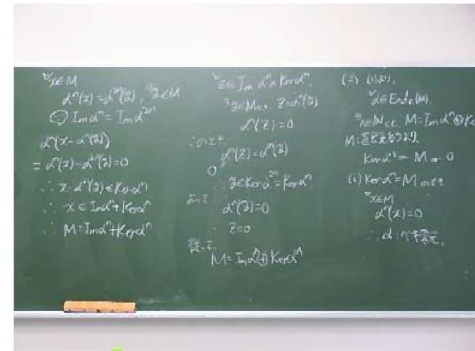 ∀x∈M
αⁿ(x)=α²ⁿ(y), ∃y∈M
∵ Imαⁿ=Imα²ⁿ
αⁿ(x-αⁿ(y))
=αⁿ(x)-α²ⁿ(y)=0
∴ x-αⁿ(y)∈Kerαⁿ
∴ x∈Imαⁿ+Kerαⁿ
∴ M=Imαⁿ+Kerαⁿ
∀z∈Imαⁿ∩Kerαⁿ
∃y∈M s.t. z=αⁿ(y)
αⁿ(z)=0
αⁿ(z)=α²ⁿ(y)
0
∴ y∈Kerα²ⁿ=Kerαⁿ
αⁿ(y)=0
∴ z=0
M=Imαⁿ⊕Kerαⁿ
(2) (1)より,
∀α∈End_R(M),
∃n∈N s.t. M=Imαⁿ⊕Kerαⁿ
M:
Kerαⁿ=M or 0
(i) Kerαⁿ=M のとき
∀x∈M
αⁿ(x)=0
∴ α:べキ零